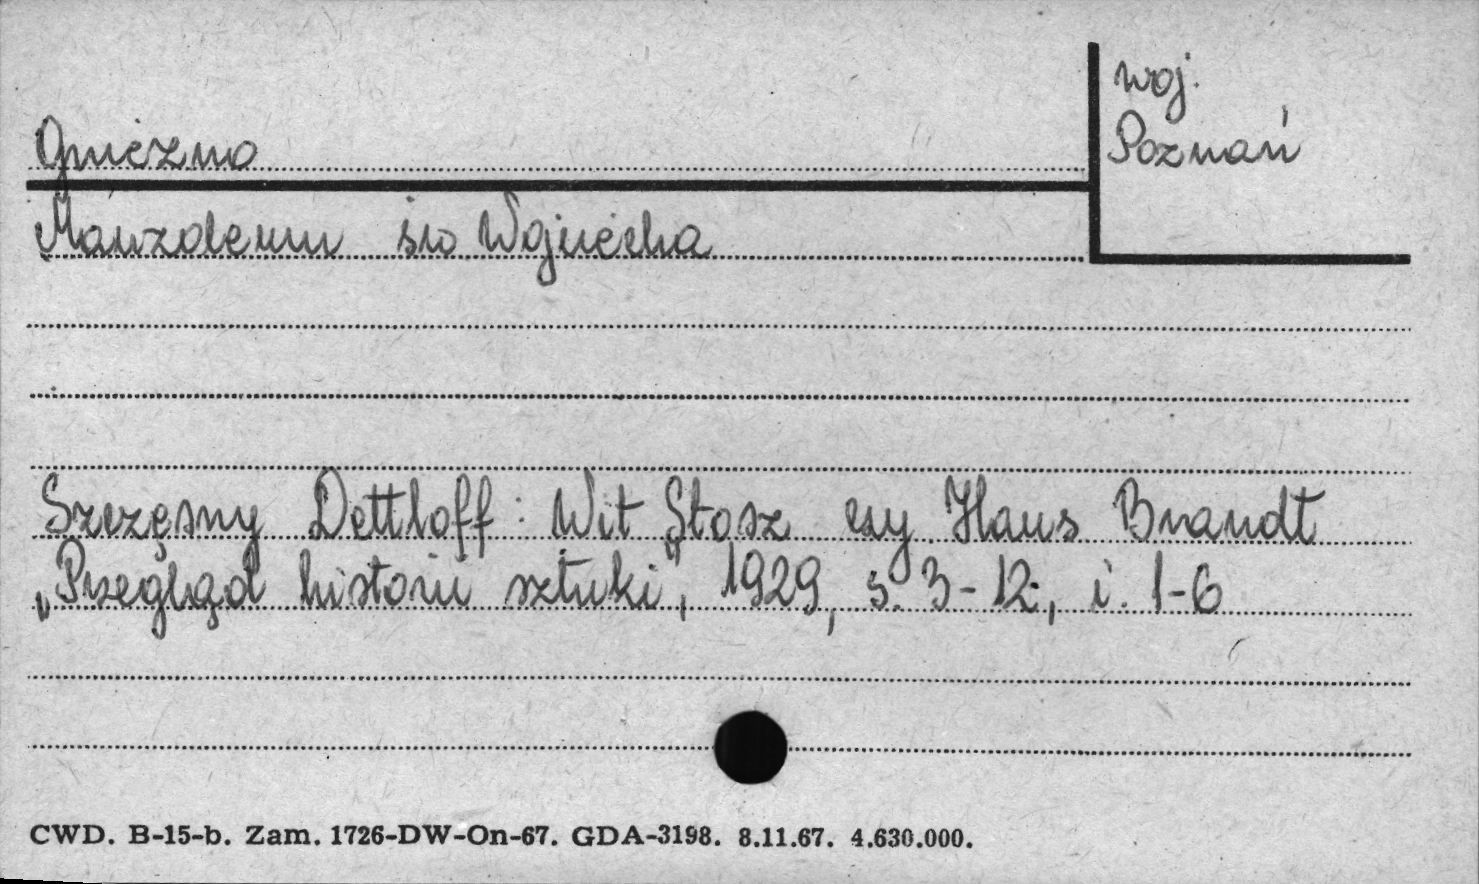 Gniezno
woj.
Poznań
Mauzoleum św Wojciecha
Szczęsny Dettloff: Wit Stosz czy Hans Brandt
„Przegląd historii sztuki”, 1929, s. 3-12, i. 1-6
CWD. B-15-b. Zam. 1726-DW-On-67. GDA-3198. 8.11.67. 4.630.000.